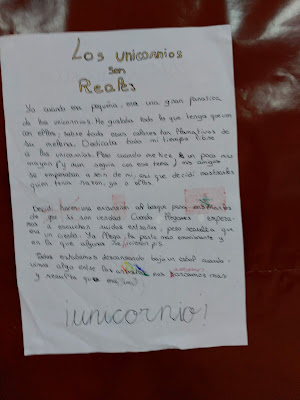 Los unicornios
son
Reales
Yo cuando era pequeña, era una gran fanatica
de los unicornios. Me gustaba todo lo que tenga que ver
con ellos, sobre todo esos colores tan llamativos de
su melena. Dedicaba todo mi tiempo libre
a los unicornios. Pero cuando me hice un poco mas
mayor (y aun seguia con ese tema) mis amigos
se empezaban a reir de mi, asi que decidi mostrarles
quien tenia razon, yo o ellos.
Decidi hacer una excursión al bosque para
de que si son verdad. Cuando llegamos
a escuchar ruidos extraños, pero resulta que
era un cierdo. Ya llega la parte mas emocionante y
en la que algunos se hicieron pis.
Todos estabamos descansando bajo un arbol cuando
vimos algo entre los nos acercamos mas
y resulta que era ¡un
¡unicornio!